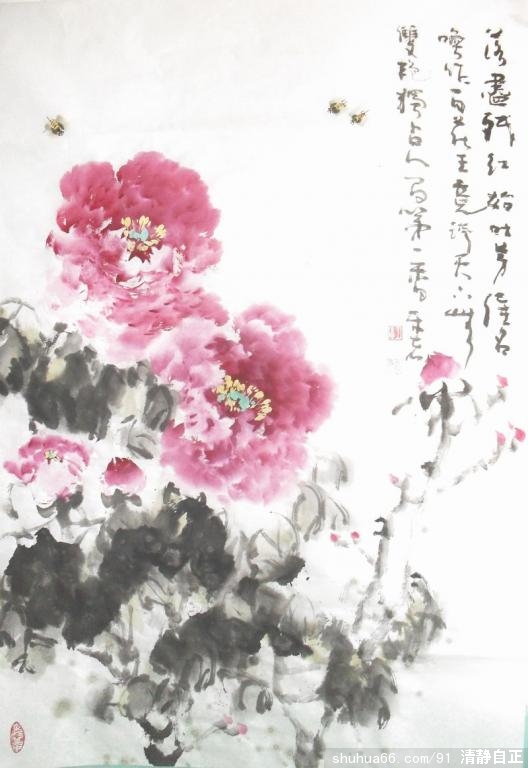 落盡殘紅始吐芳佳名
喚作百花王竟誇天下
雙艷獨占人間第一香
shuhua66.com/91 清静自正